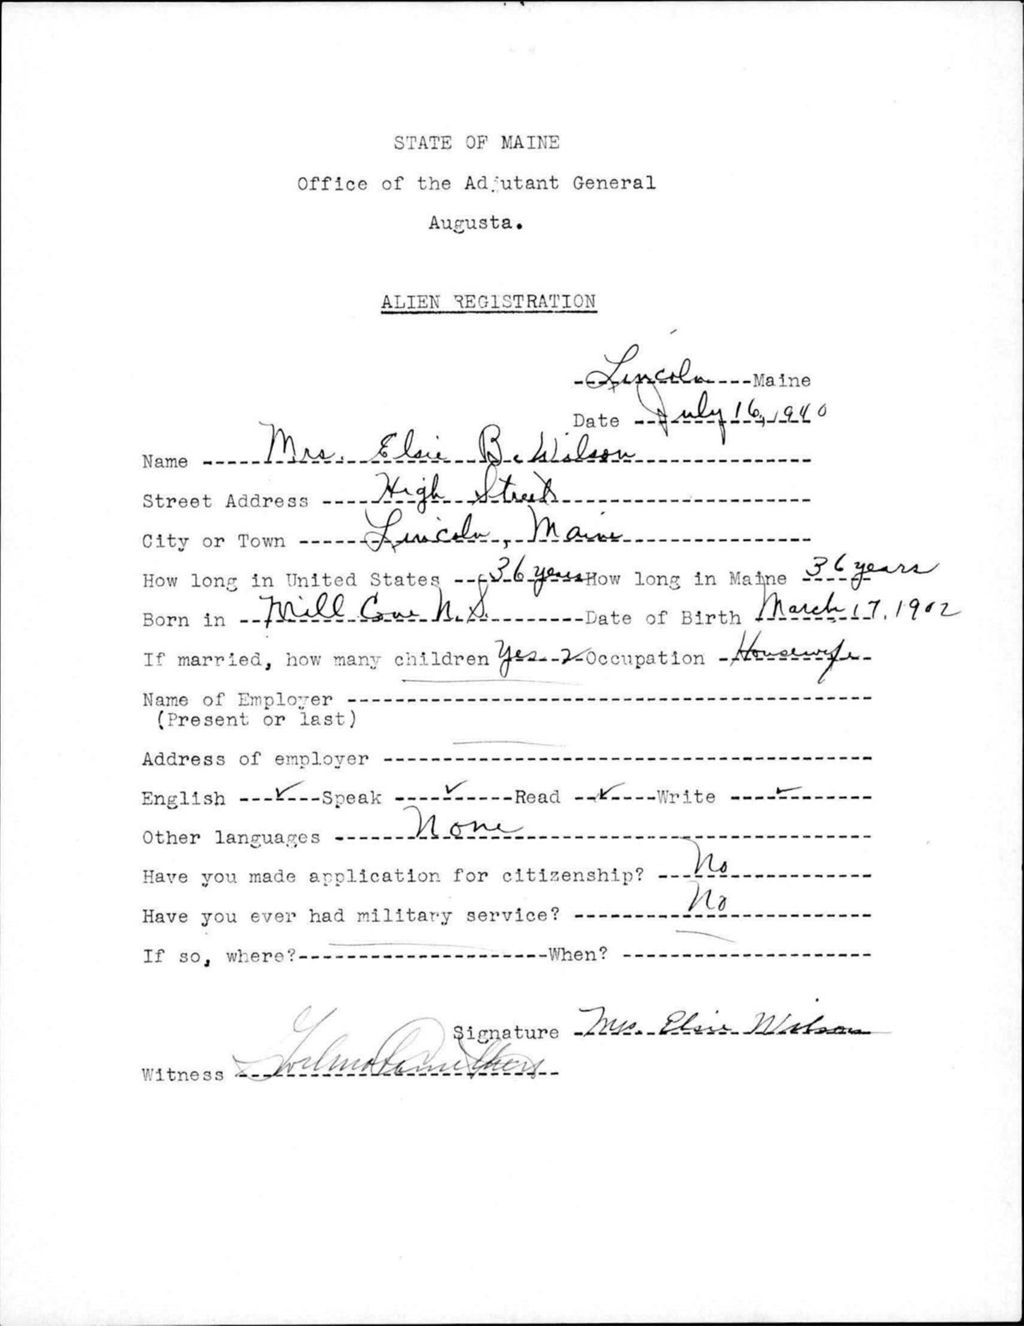 STATE OF MAINE
Office of the Adjutant General
Augusta.
ALIEN REGISTRATION
Lincoln Maine
Date July 16, 1940
Name Mrs. Elsie B. Wilson
Street Address High Street
City or Town Lincoln, Maine
How long in United States 36 years How long in Maine 36 years
Born in Mill Cove N.S. Date of Birth March 17, 1902
If married, how many children Yes 2 Occupation Housewife
Name of Employer
(Present or last)
Address of employer
English ✓ Speak ✓ Read ✓ Write ✓
Other languages None
Have you made application for citizenship? No
Have you ever had military service? No
If so, where? When?
Signature Mrs. Elsie Wilson
Witness